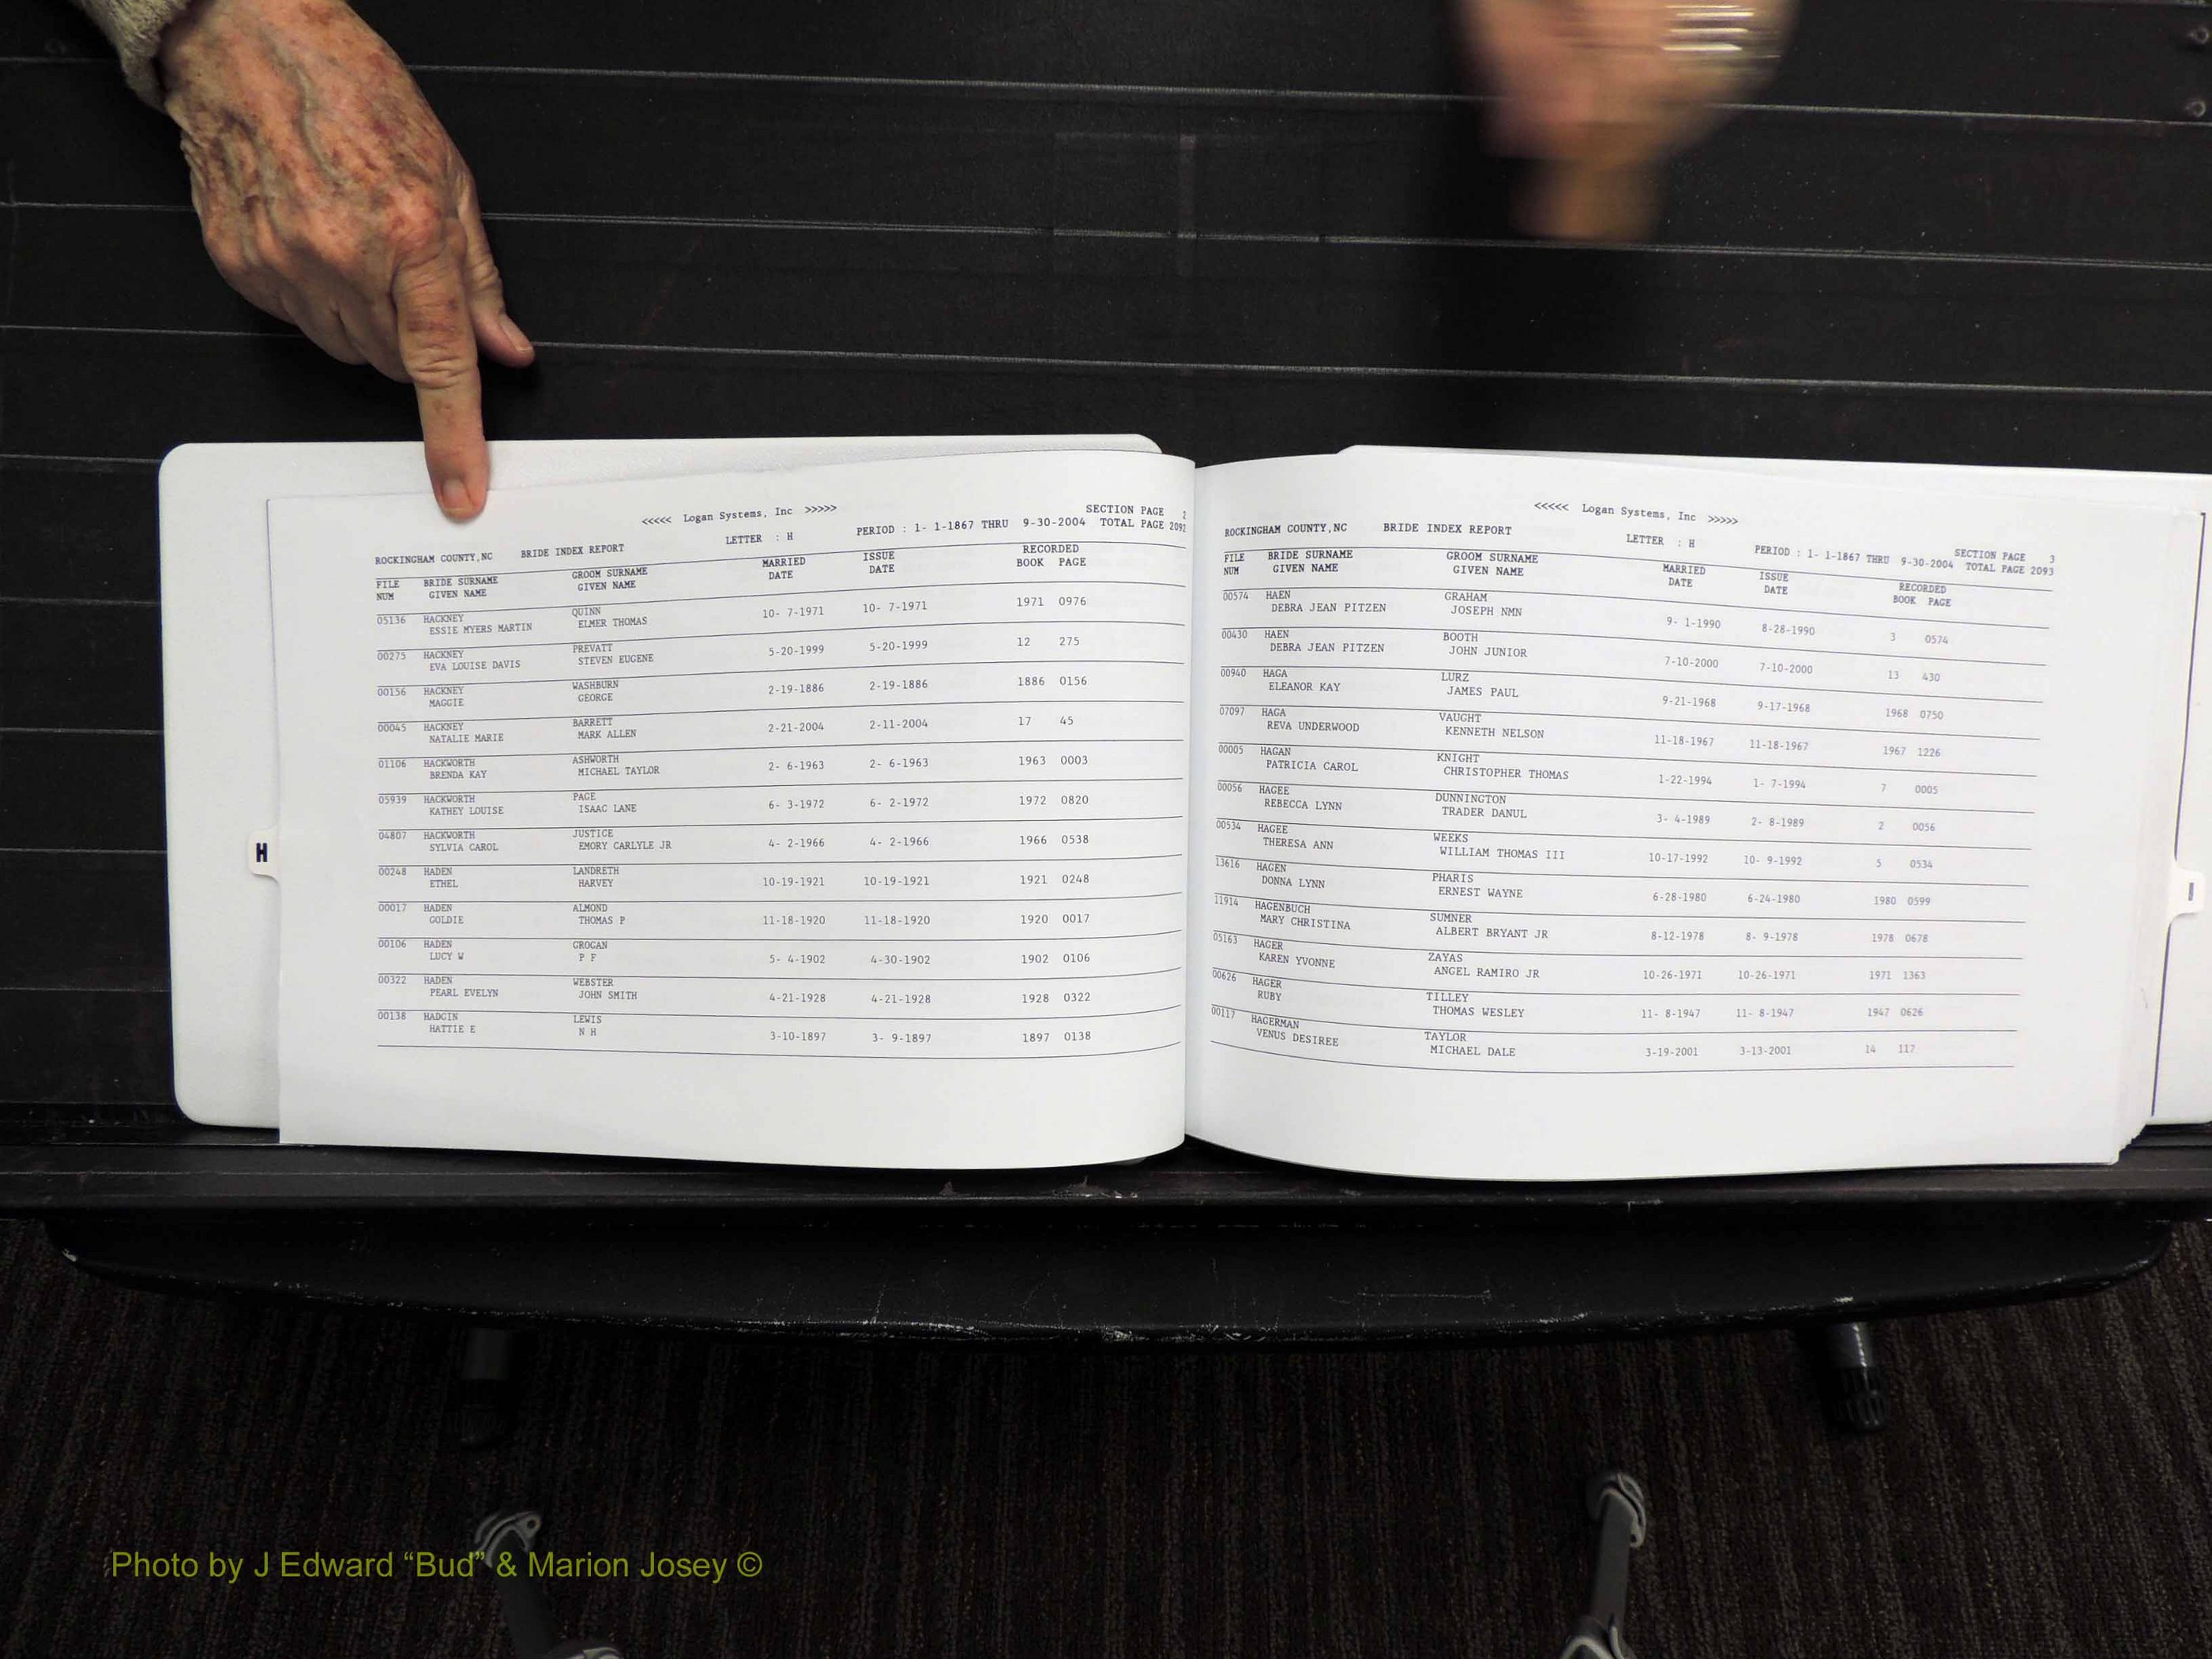 <<<<< Logan Systems, Inc >>>>>
SECTION PAGE 2
ROCKINGHAM COUNTY,NC BRIDE INDEX REPORT LETTER : H PERIOD : 1- 1-1867 THRU 9-30-2004 TOTAL PAGE 2092
FILE BRIDE SURNAME GROOM SURNAME MARRIED ISSUE RECORDED
NUM GIVEN NAME GIVEN NAME DATE DATE BOOK PAGE
05136 HACKNEY QUINN 10- 7-1971 10- 7-1971 1971 0976
ESSIE MYERS MARTIN ELMER THOMAS
00275 HACKNEY PREVATT 5-20-1999 5-20-1999 12 275
EVA LOUISE DAVIS STEVEN EUGENE
00156 HACKNEY WASHBURN 2-19-1886 2-19-1886 1886 0156
MAGGIE GEORGE
00045 HACKNEY BARRETT 2-21-2004 2-11-2004 17 45
NATALIE MARIE MARK ALLEN
01106 HACKWORTH ASHWORTH 2- 6-1963 2- 6-1963 1963 0003
BRENDA KAY MICHAEL TAYLOR
05939 HACKWORTH PAGE 6- 3-1972 6- 2-1972 1972 0820
KATHEY LOUISE ISAAC LANE
04807 HACKWORTH JUSTICE 4- 2-1966 4- 2-1966 1966 0538
SYLVIA CAROL EMORY CARLYLE JR
00248 HADEN LANDRETH 10-19-1921 10-19-1921 1921 0248
ETHEL HARVEY
00017 HADEN ALMOND 11-18-1920 11-18-1920 1920 0017
GOLDIE THOMAS P
00106 HADEN GROGAN 5- 4-1902 4-30-1902 1902 0106
LUCY W P F
00322 HADEN WEBSTER 4-21-1928 4-21-1928 1928 0322
PEARL EVELYN JOHN SMITH
00138 HADGIN LEWIS 3-10-1897 3- 9-1897 1897 0138
HATTIE E N H
H
<<<<< Logan Systems, Inc >>>>>
SECTION PAGE 3
ROCKINGHAM COUNTY,NC BRIDE INDEX REPORT LETTER : H PERIOD : 1- 1-1867 THRU 9-30-2004 TOTAL PAGE 2093
FILE BRIDE SURNAME GROOM SURNAME MARRIED ISSUE RECORDED
NUM GIVEN NAME GIVEN NAME DATE DATE BOOK PAGE
00574 HAEN GRAHAM 9- 1-1990 8-28-1990 3 0574
DEBRA JEAN PITZEN JOSEPH NMN
00430 HAEN BOOTH 7-10-2000 7-10-2000 13 430
DEBRA JEAN PITZEN JOHN JUNIOR
00940 HAGA LURZ 9-21-1968 9-17-1968 1968 0750
ELEANOR KAY JAMES PAUL
07097 HAGA VAUGHT 11-18-1967 11-18-1967 1967 1226
REVA UNDERWOOD KENNETH NELSON
00005 HAGAN KNIGHT 1-22-1994 1- 7-1994 7 0005
PATRICIA CAROL CHRISTOPHER THOMAS
00056 HAGEE DUNNINGTON 3- 4-1989 2- 8-1989 2 0056
REBECCA LYNN TRADER DANUL
00534 HAGEE WEEKS 10-17-1992 10- 9-1992 5 0534
THERESA ANN WILLIAM THOMAS III
13616 HAGEN PHARIS 6-28-1980 6-24-1980 1980 0599
DONNA LYNN ERNEST WAYNE
11914 HAGENBUCH SUMNER 8-12-1978 8- 9-1978 1978 0678
MARY CHRISTINA ALBERT BRYANT JR
05163 HAGER ZAYAS 10-26-1971 10-26-1971 1971 1363
KAREN YVONNE ANGEL RAMIRO JR
00626 HAGER TILLEY 11- 8-1947 11- 8-1947 1947 0626
RUBY THOMAS WESLEY
00117 HAGERMAN TAYLOR 3-19-2001 3-13-2001 14 117
VENUS DESIREE MICHAEL DALE
I
Photo by J Edward “Bud” & Marion Josey ©